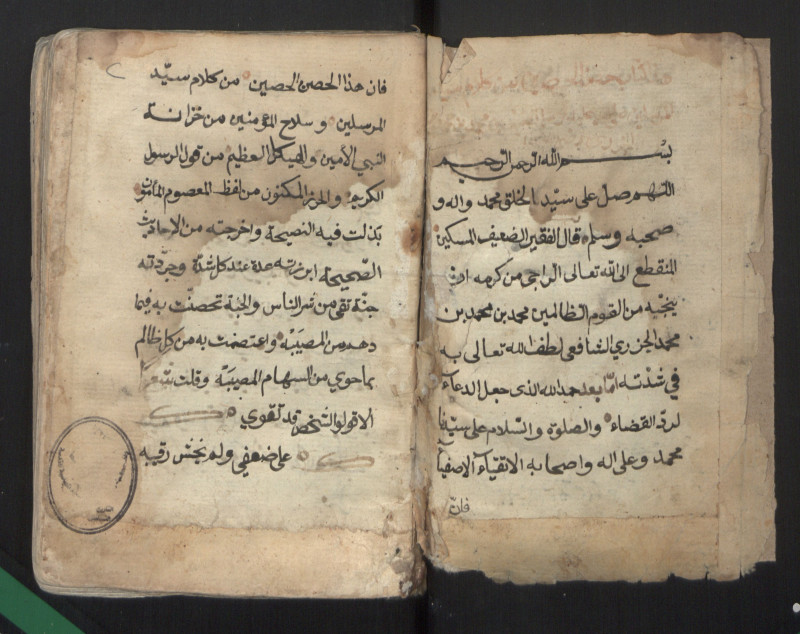 بسم الله الرحمن الرحيم
اللهم صل على سيد الخلق محمد واله و
صحبه وسلم قال الفقير الضعيف المسكين
المنقطع الى الله تعالى الراجى من كرمه ان
ينجيه من القوم الظالمين محمد بن محمد بن
محمد الجزري الشافعي لطف الله تعالى به
في شدته اما بعد حمد الله الذى جعل الدعاء
لرد القضاء والصلوة والسلام على سيدنا
محمد وعلى اله واصحابه الاتقياء الاصفياء
فان
فان هذا الحصن الحصين من كلام سيد
المرسلين وسلاح المؤمنين من خزانة
النبي الأمين والهيكل العظيم من قول الرسول
الكريم والحرز المكنون من لفظ المعصوم المأمون
بذلت فيه النصيحة واخرجته من الاحاديث
الصحيحة ابرزته عدة عند كل شدة وجردته
جنة تقى من شر الناس والجنة تحصنت به فيما
دهم من المصيبة واعتصمت به من كل ظالم
بما حوي من السهام المصيبة وقلت شعرا
الا قولوا لشخص قد تقوي
على ضعفي ولم يخش رقيبه